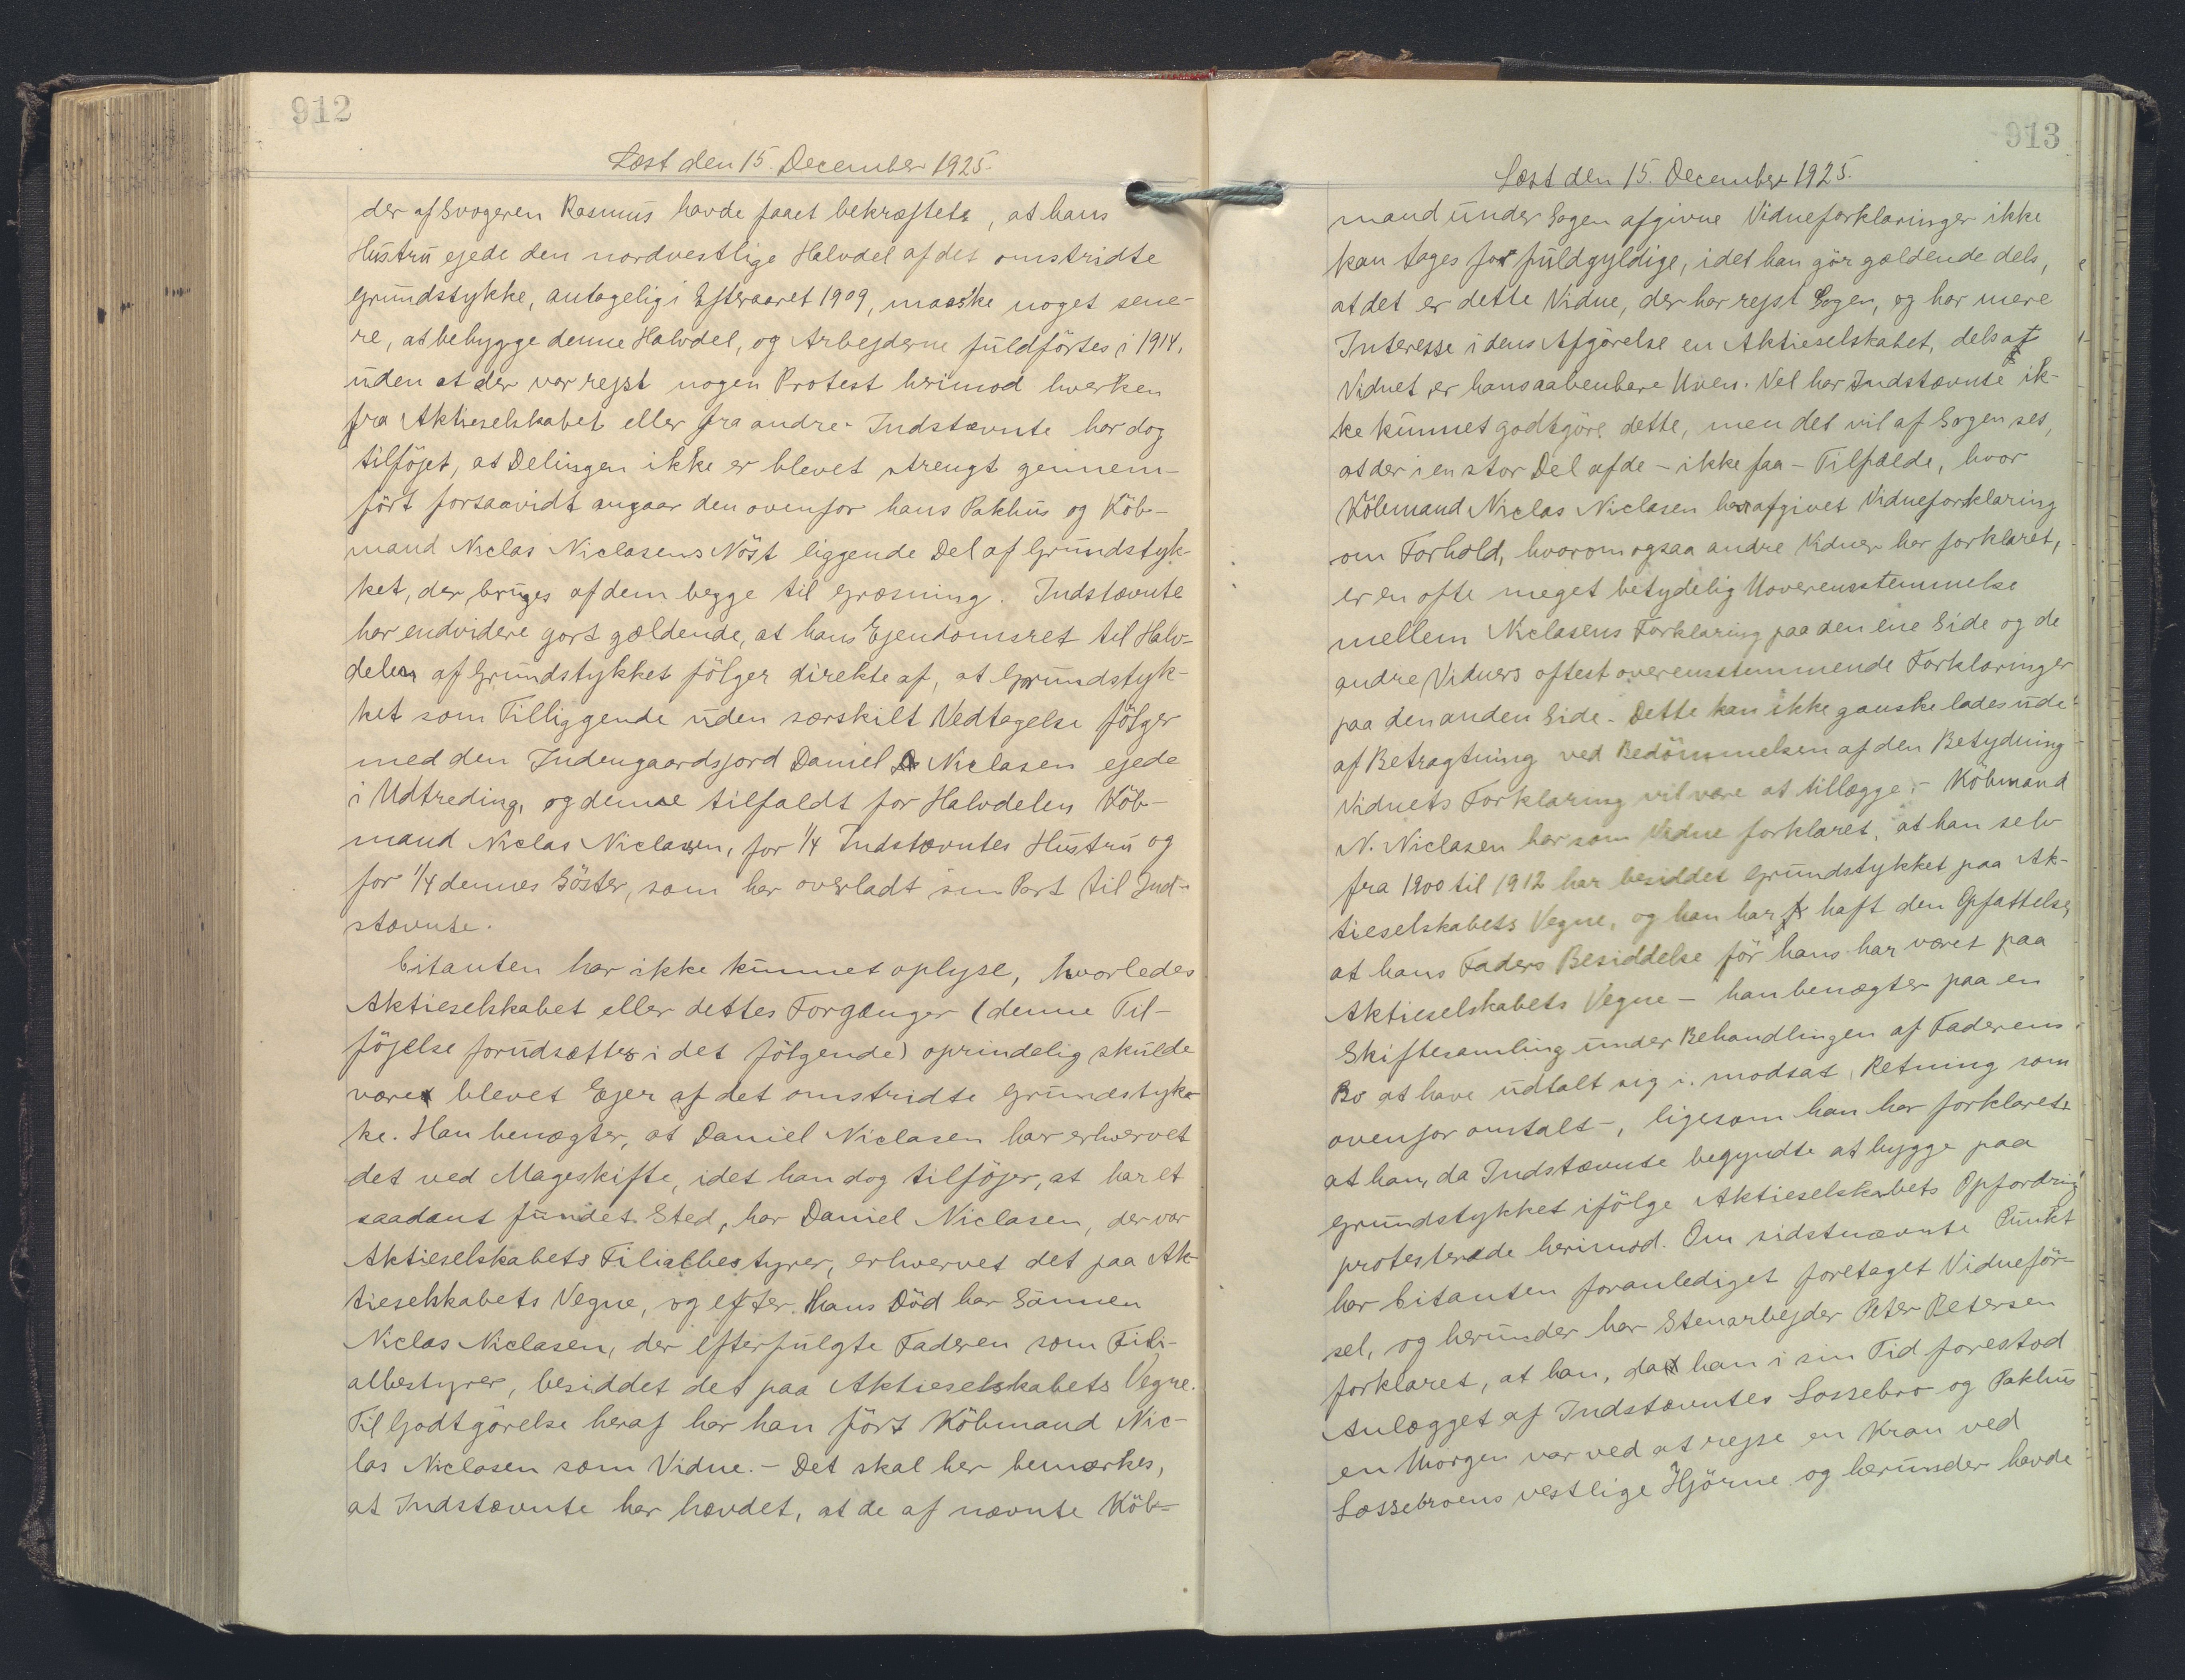 912
Læst den 15. December 1925.
der af Svogeren Rasmus havde faaet bekræftet, at hans
Hustru ejede den nordvestlige Halvdel af det omstridte
Grundstykke, antagelig i Efteraaret 1909, maaske noget sene-
re, at bebygge denne Halvdel, og Arbejderne fuldførtes i 1914,
uden at der var rejst nogen Protest herimod hverken
fra Aktieselskabet eller fra andre. Indstævnte har dog
tilföjet, at Delingen ikke er blevet strengt gennem-
fört forsaavidt angaar den ovenfor hans Pakhus og Köb-
mand Niclas Niclasens Nöst liggende Del af Grundstyk-
ket, der bruges af dem begge til Græsning. Indstævnte
har endvidere gort gældende, at hans Ejendomsret til Halv-
delen af Grundstykket fölger direkte af, at Grundstyk-
ket som Tilliggende uden særskilt Vedtagelse fölger
med den Indengaardsjord Daniel Niclasen ejede
i Udtreding, og denne tilfaldt for Halvdelen Köb-
mand Niclas Niclasen, for 1/4 Indstævntes Hustru og
for 1/4 dennes Söster, som har overladt sin Part til Ind-
stævnte.
Citanten har ikke kunnet oplyse, hvorledes
Aktieselskabet eller dettes Forgænger (denne Til-
föjelse forudsættes i det fölgende) oprindelig skulde
være blevet Ejer af det omstridte Grundstyk-
ke. Han benægter, at Daniel Niclasen har erhvervet
det ved Mageskifte, idet han dog tilföjer, at har et
saadant fundet Sted, har Daniel Niclasen, der var
Aktieselskabets Filialbestyrer, erhvervet det paa Ak-
tieselskabets Vegne, og efter hans Död har Sönnen
Niclas Niclasen, der efterfulgte Faderen som Fili-
albestyrer, besiddet det paa Aktieselskabets Vegne.
Til Godtgörelse heraf har han fört Köbmand Nic-
las Niclasen som Vidne. - Det skal her bemærkes,
at Indstævnte har hævdet, at de af nævnte Köb-
913
Læst den 15. December 1925.
mand under Sagen afgivne Vidneforklaringer ikke
kan tages for fuldgyldige, idet han gör gældende dels,
at det er dette Vidne, der har rejst Sagen, og har mere
Interesse i dens Afgörelse en Aktieselskabet, dels at
Vidnet er hans aabenbare Uven. Vel har Indstævnte ik-
ke kunnet godtgöre dette, men det vil af Sagen ses,
at der i en stor Del af de - ikke faa - Tilfælde, hvor
Köbmand Niclas Niclasen har afgivet Vidneforklaring
om Forhold, hvorom ogsaa andre Vidner har forklaret,
er en ofte meget betydelig Uoverensstemmelse
mellem Niclasens Forklaring paa den ene Side og de
andre Vidners oftest overensstemmende Forklaringer
paa den anden Side. Dette kan ikke ganske lades ude
af Betragtning ved Bedömmelsen af den Betydning
Vidnets Forklaring vil være at tillægge. - Köbmand
N. Niclasen har som Vidne forklaret, at han selv
fra 1900 til 1912 har besiddet Grundstykket paa Ak-
tieselskabets Vegne, og han har haft den Opfattelse,
at hans Faders Besiddelse för hans har været paa
Aktieselskabets Vegne - han benægter paa en
Skiftesamling under Behandlingen af Faderens
Bo at have udtalt sig i modsat Retning som
ovenfor omtalt -, ligesom han har forklaret
at han, da Indstævnte begyndte at bygge paa
Grundstykket ifölge Aktieselskabets Opfordring
protesterede herimod. Om sidstnævnte Punkt
har Citanten foranlediget foretaget Vidneför-
sel, og herunder har Stenarbejder Peter Petersen
forklaret, at han, da han i sin Tid forestod
Anlægget af Indstævntes Lossebro og Pakhus
en Morgen var ved at rejse en Kran ved
Lossebroens vestlige Hjörne og herunder havde